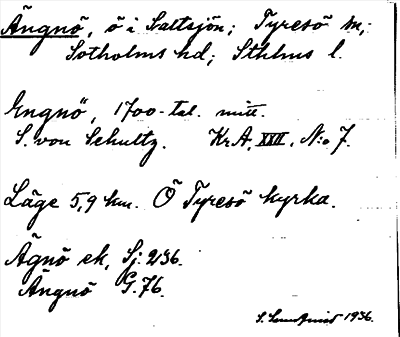 Ängnö, ö i Saltsjön; Tyresö sn,
Sotholms hd; Sthlms l.
Engnö, 1700-tal. mitt.
S. von Schultz. Kr.A. XXII, N:o 7.
Läge 5,9 km. Ö Tyresö kyrka.
Ägnö ek, Sj. 236.
Ängnö G. 76.
S. 1936.